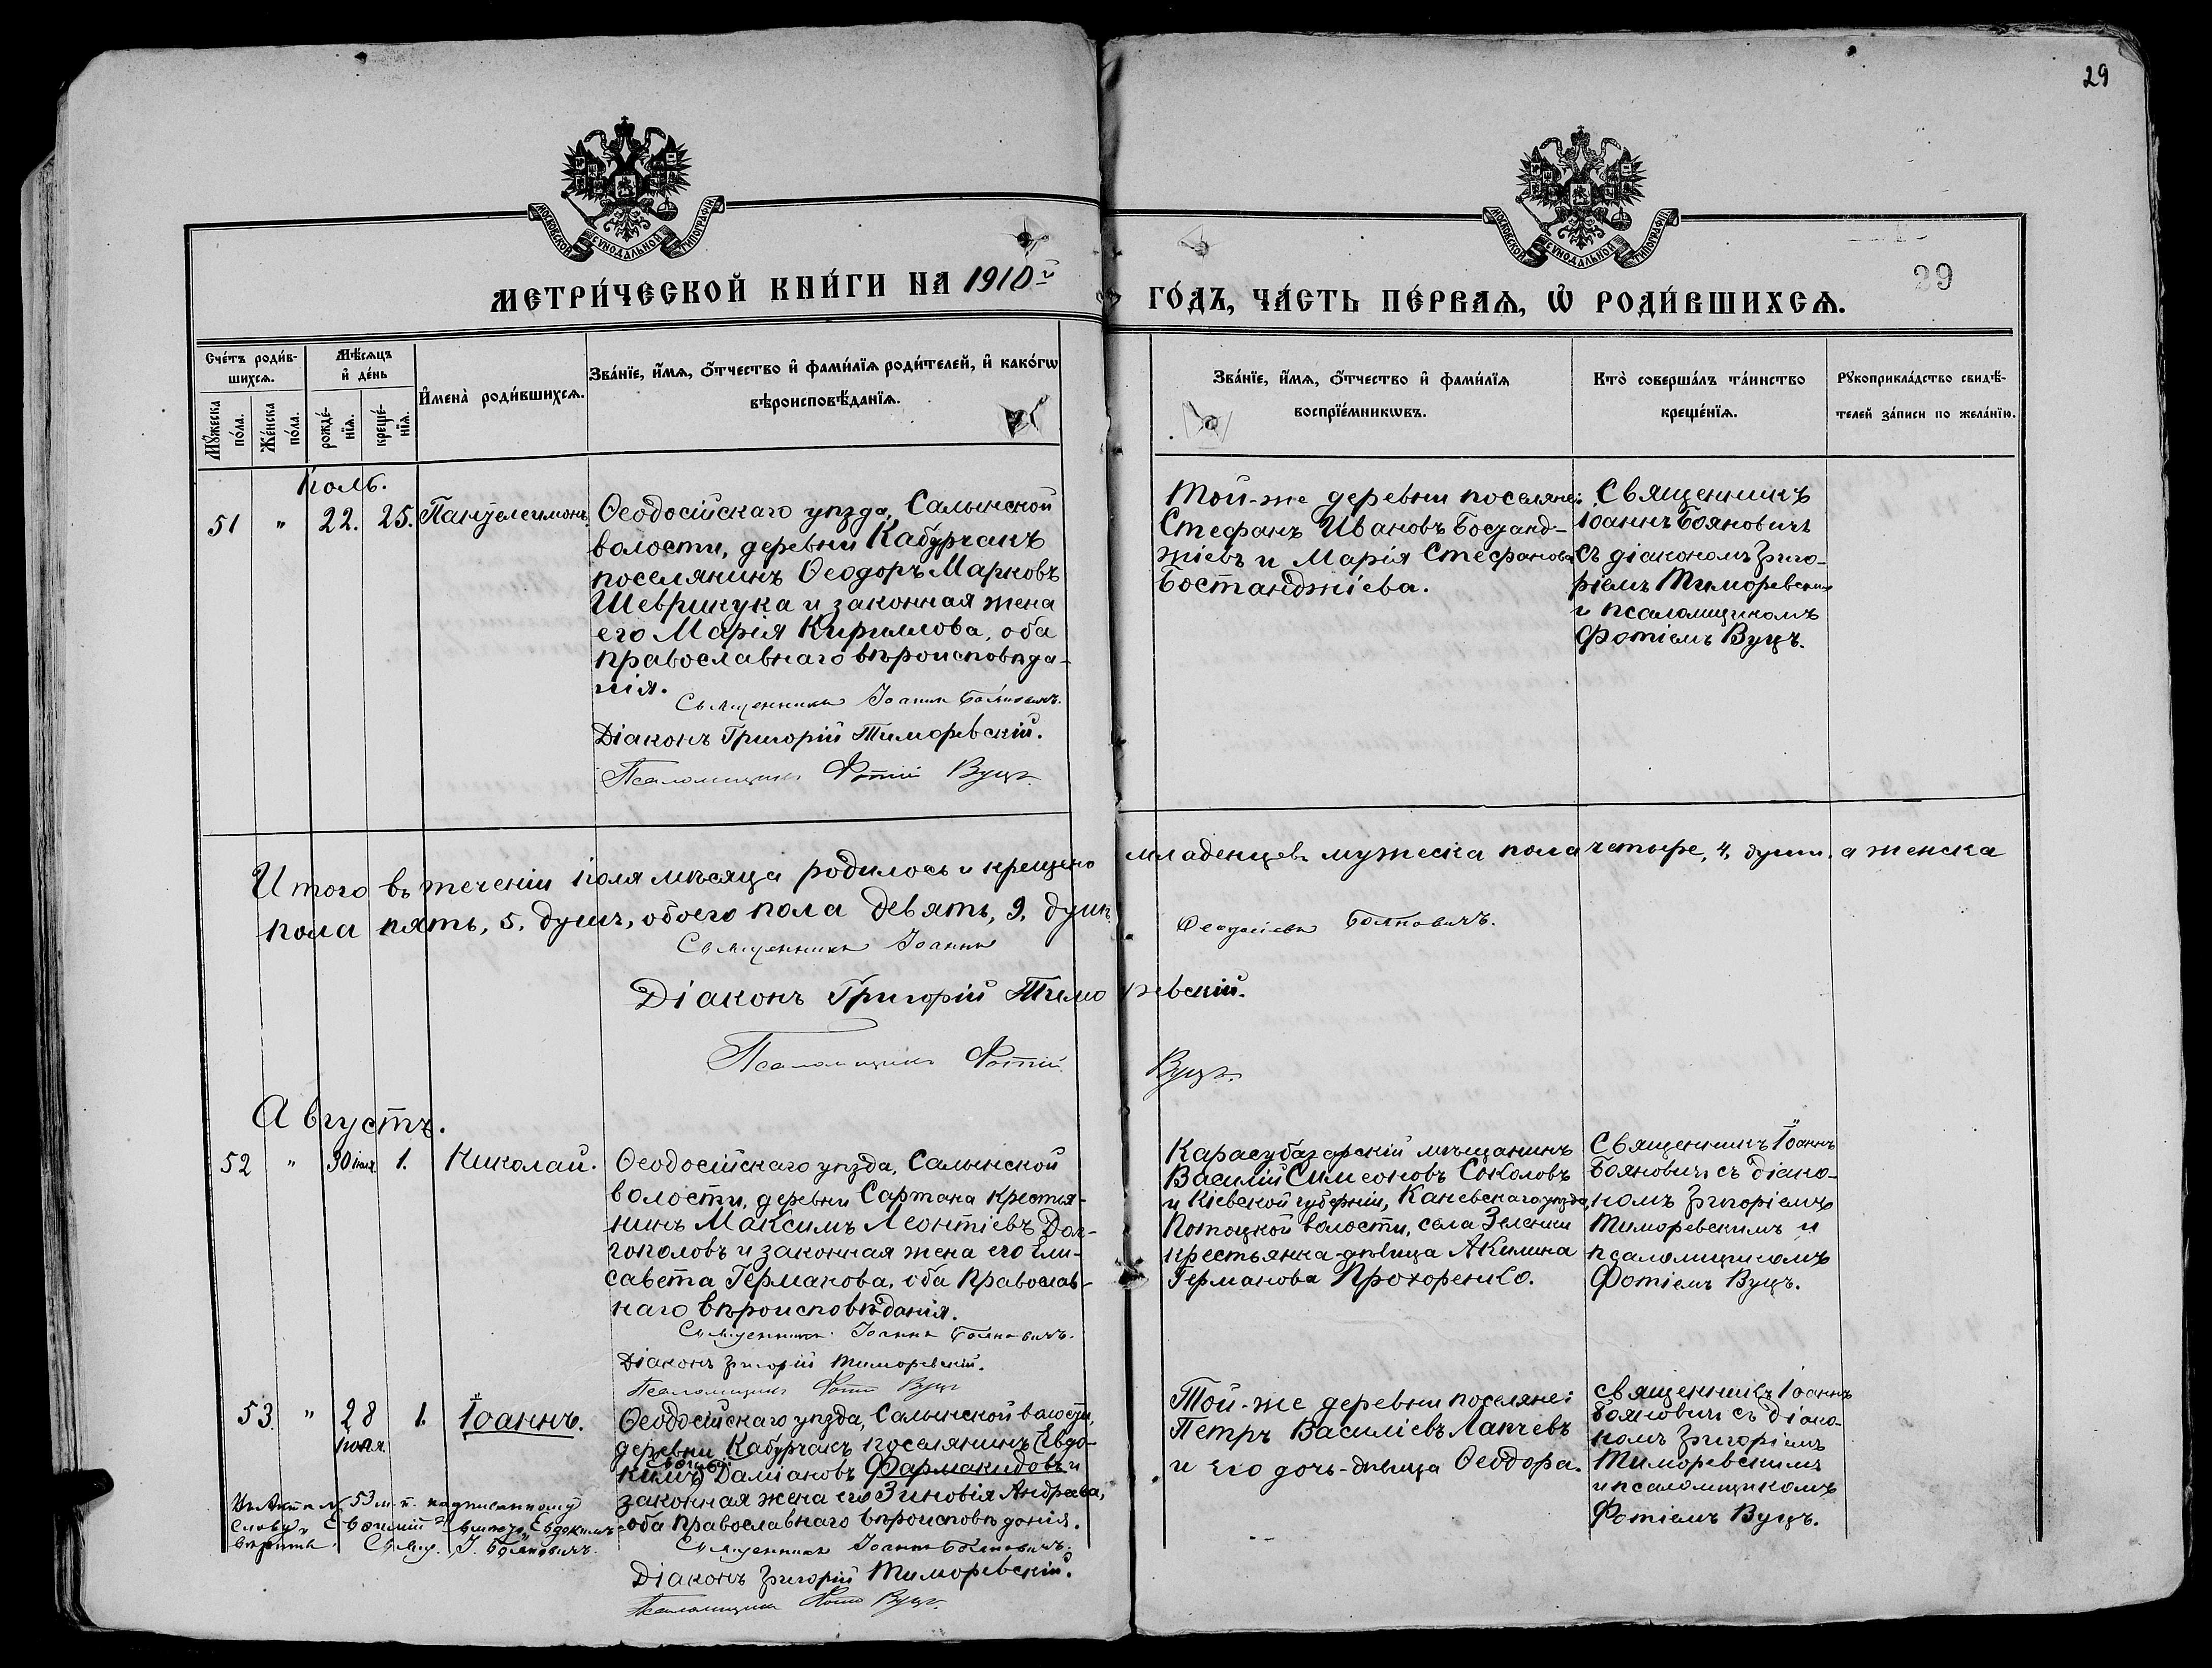 29
МОСКОВСКОЙ СѴНОДАЛЬНОЙ ТИПОГРАФІИ
МОСКОВСКОЙ СѴНОДАЛЬНОЙ ТИПОГРАФІИ
29
МЕТРИ́ЧЕСКОЙ КНИ́ГИ НА 1910й
ГО́ДЪ, ЧА́СТЬ ПЕ́РВАѦ, Ѡ҆ РОДИ́ВШИХСѦ.
Сче́тъ роди́в-
шихсѧ.
Мꙋ́жеска
по́ла.
Же́нска
по́ла.
Мѣ́сѧцъ
и҆ де́нь
рожде́-
нїѧ.
креще́-
нїѧ.
И҆мена̀ роди́вшихсѧ.
Зва́нїе, и҆́мѧ, ѻ҆́тчество и҆ фами́лїѧ роди́телей, и҆ како́гѡ
вѣроисповѣ́данїѧ.
Зва́нїе, и҆́мѧ, ѻ҆́тчество и҆ фами́лїѧ
воспрїе́мникѡвъ.
Кто̀ соверша́лъ та́инство
креще́нїѧ.
Рꙋкоприкла́дство свидѣ́-
телей за́писи по жела́нїю.
Іюль.
51 " 22. 25. Пантелеимонъ.
Ѳеодосійскаго уѣзда, Салынской
волости, деревни Кабурчакъ
поселянинъ Ѳеодоръ Марковъ
Шеврикука и законная жена
его Марія Кириллова, оба
православнаго вѣроисповѣда-
нія.
Священникъ Іоаннъ Бояновичъ.
Діаконъ Григорій Тиморевскій.
Псаломщикъ Фотій Вуцъ.
Той-же деревни поселяне:
Стефанъ Ивановъ Бостанд-
жіевъ и Марія Стефанова
Бостанджіева.
Священникъ
Іоаннъ Бояновичъ
съ діакономъ Григо-
ріемъ Тиморевскимъ
и псаломщикомъ
Фотіемъ Вуцъ.
Итого въ теченіи іюля мѣсяца родилось и крещено младенцевъ мужеска пола четыре, 4, души, а женска
пола пять, 5, душъ, обоего пола девять, 9, душъ.
Священникъ Іоаннъ Ѳеодосіевъ Бояновичъ.
Діаконъ Григорій Тиморевскій.
Псаломщикъ Фотій Вуцъ.
Августъ.
52 " 30 іюля 1. Николай.
Ѳеодосійскаго уѣзда, Салынской
волости, деревни Сартана крестья-
нинъ Максимъ Леонтіевъ Дол-
гополовъ и законная жена его Ели-
савета Германова, оба православ-
наго вѣроисповѣданія.
Священникъ Іоаннъ Бояновичъ.
Діаконъ Григорій Тиморевскій.
Псаломщикъ Фотій Вуцъ
Карасубазарскій мѣщанинъ
Василій Симеоновъ Соколовъ
и Кіевской губерніи, Каневскаго уѣзда,
Потоцкой волости, села Зеленки
крестьянка-дѣвица Акилина
Германова Прохоренко.
Священникъ Іоаннъ
Бояновичъ съ діако-
номъ Григоріемъ
Тиморевскимъ и
псаломщикомъ
Фотіемъ Вуцъ.
53. " 28 1. Іоаннъ.
іюля.
Ѳеодосійскаго уѣзда, Салынской волости,
деревни Кабурчакъ поселянинъ Евдо-
кимъ Даміановъ Фармакидовъ и
законная жена его Зиновія Андреева,
оба православнаго вѣроисповѣданія.
Священникъ Іоаннъ Бояновичъ.
Діаконъ Григорій Тиморевскій.
Псаломщикъ Фотій Вуцъ.
53 надписанному
слову Евѳимій вмѣсто Евдокимъ
вѣрить. Свящ. І. Бояновичъ.
Той-же деревни поселяне:
Петръ Василіевъ Лапчевъ
и его дочь-дѣвица Ѳеодора.
Священникъ Іоаннъ
Бояновичъ съ діако-
номъ Григоріемъ
Тиморевскимъ
и псаломщикомъ
Фотіемъ Вуцъ.